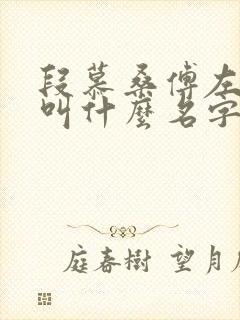 段慕桑傅左
叫什麽名字
庭春樹 望月